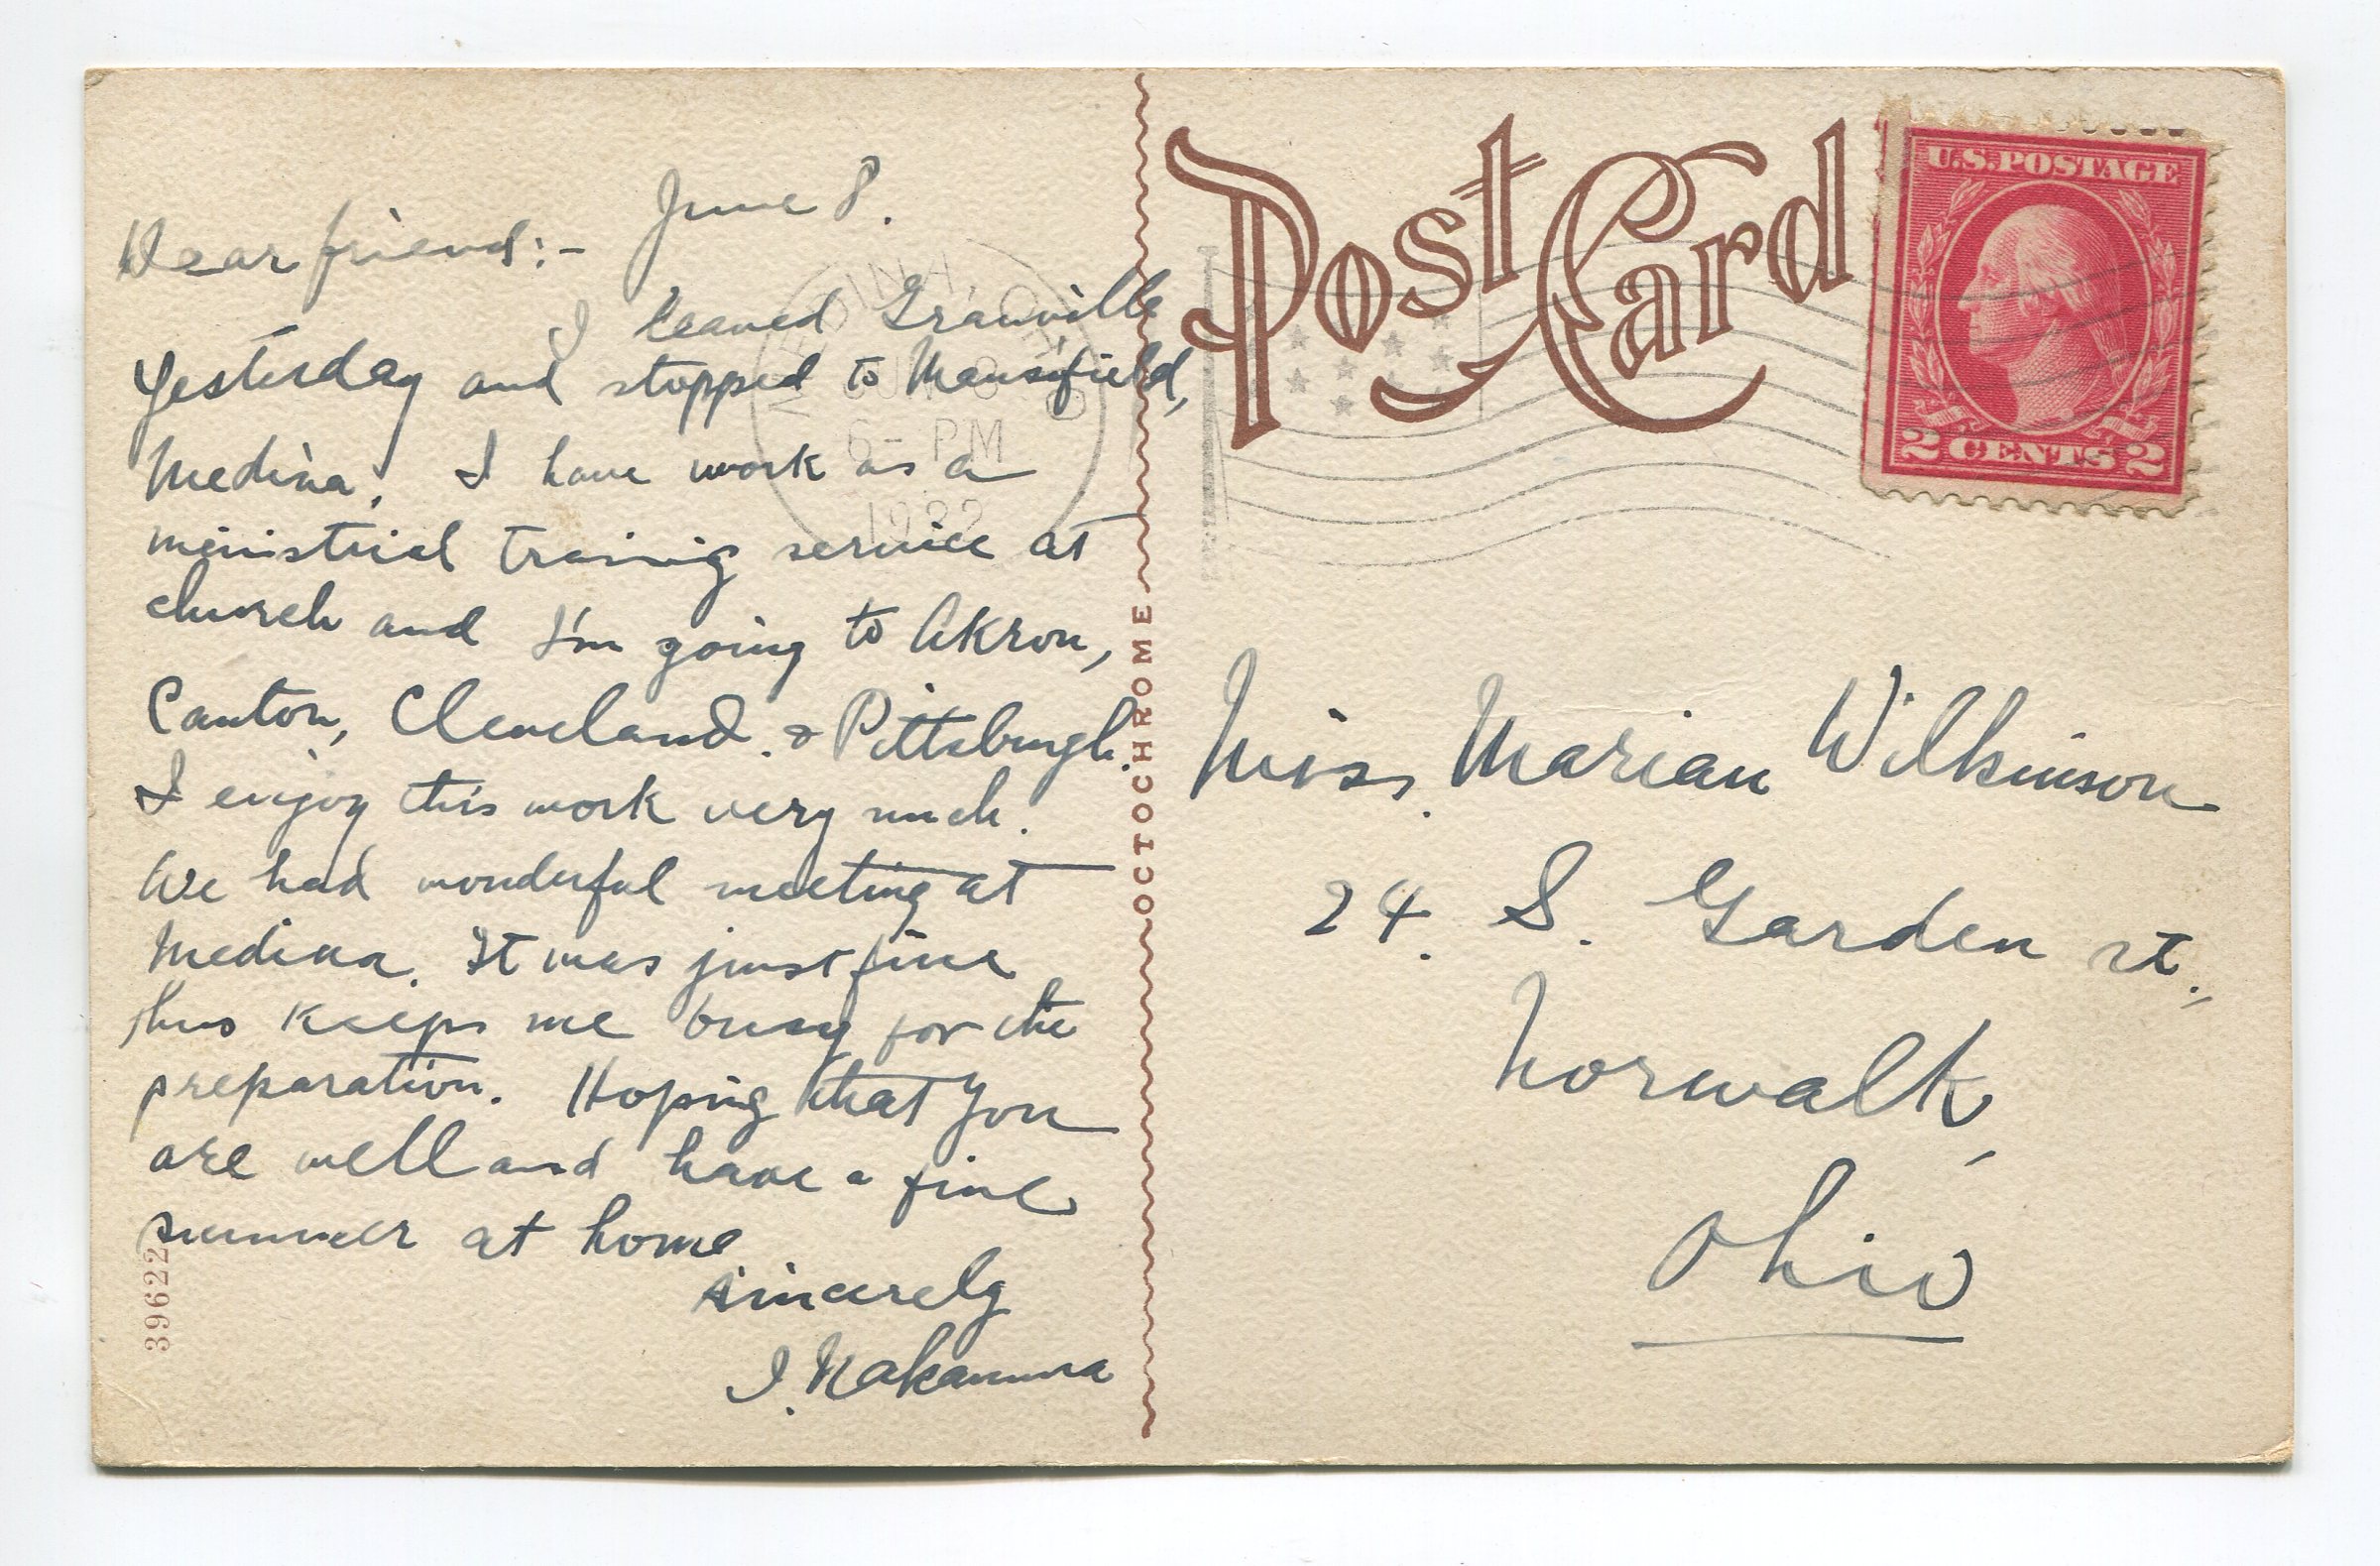 June 8.
Dear friend:-
I leaved Granville
Yesterday and stopped to Mansifield,
Medina. I have work as a
ministrial training service at
church and I'm going to Akron,
Canton, Cleveland. & Pittsburgh.
I enjoy this work very much.
We had wonderful meeting at
Medina. It was just fine
thus keeps me busy for the
preparation. Hoping that you
are well and have a fine
summer at home
sincerely
I. Nakamura
39622
MEDINA, OHIO
JUN 8
6- PM
1922
OCTOCHROME
Post Card
U.S. POSTAGE
2 CENTS 2
Miss. Marian Wilkinson
24. S. Garden st.,
Norwalk,
Ohio